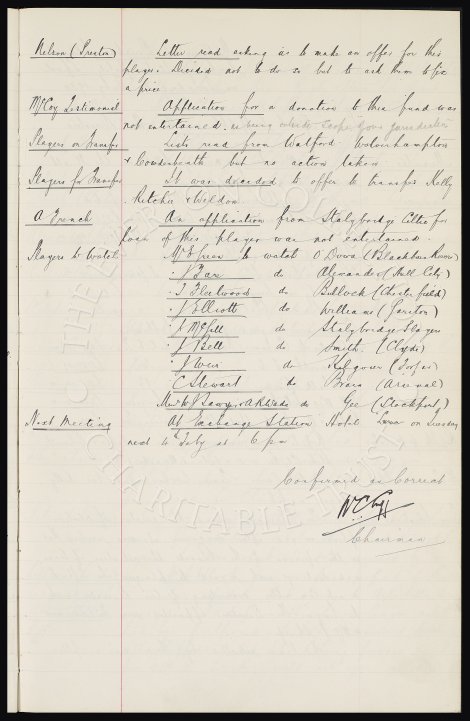 Nelson (Preston) Letter read asking us to make an offer for this
player. Decided not to do so but to ask them to fix
a price
McCoy Testimonial Application for a donation to this fund was
not entertained. as being outside scope of our jurisdiction
Players on Transfer Lists read from Watford Wolverhampton
& Cowdenbeath but no action taken
Players for Transfer It was decided to offer to transfer Kelly
Ritchie & Weldon
A French An application from Stalybridge Celtic for
loan of this player was not entertained.
Players to Watch Mr E Green to watch O'Dowd (Blackburn Rovers)
" J Barr do Alexander (Hull City)
" T Fleetwood do Bullock (Chesterfield)
" J Elliott do Williams
" do Stalybridge Players
" J Bell do Smith (Clyde)
" J Weir do
C Stewart do (Arsenal)
do Gee (Stockport)
Next Meeting At Exchange Station Hotel on Tuesday
next 4 July at 6 pm
Confirmed as Correct
W C Cuff
Chairman
THE EVERTON
CHARITABLE TRUST